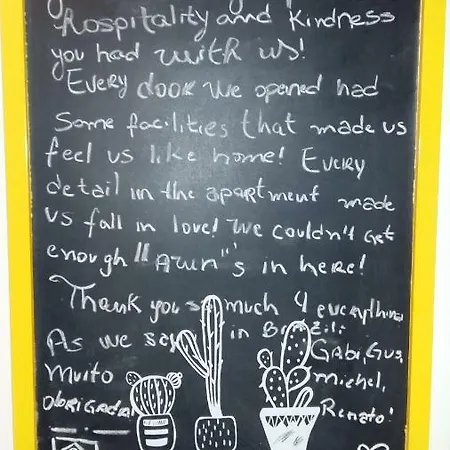 Hospitality and Kindness
you had with us!
Every door we opened had
Some facilities that made us
feel us like home! Every
detail in the apartment made
us fall in love! We couldn't get
enough "Awn"s in here!
Thank you so much 4 everything
As we say in Brazil:
Muito
Obrigada!
Gabi, Gus,
Michel,
Renato!